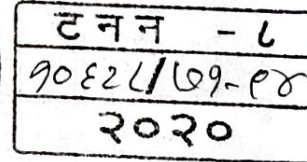 टनन - ८
१०६२८/७१-९४
२०२०